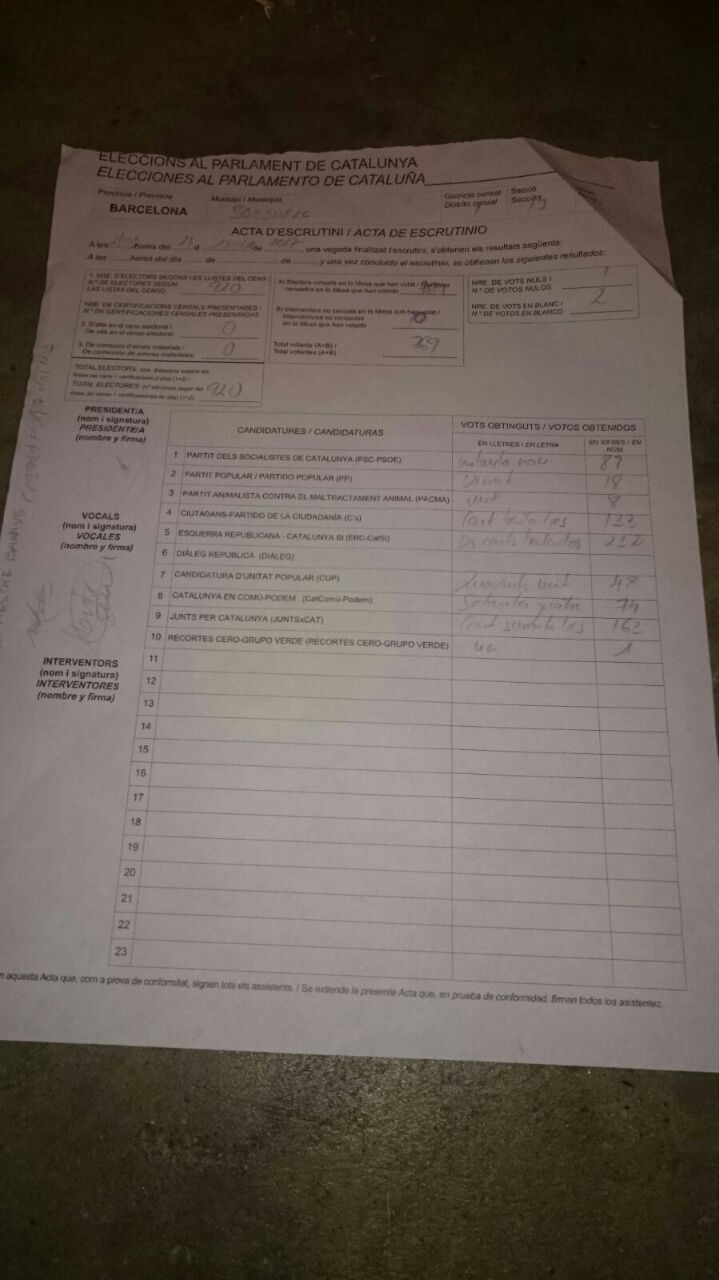 ELECCIONS AL PARLAMENT DE CATALUNYA
ELECCIONES AL PARLAMENTO DE CATALUÑA
Província / Provincia Municipi / Municipio Districte censal Secció
BARCELONA Distrito censal Sección
ACTA D'ESCRUTINI / ACTA DE ESCRUTINIO
A les hores del 21 d de 2017, una vegada finalitzat l'escrutini, s'obtenen els resultats següents:
A las horas del día de de y una vez concluido el escrutinio, se obtienen los siguientes resultados:
1. NRE. D'ELECTORS SEGONS LES LLISTES DEL CENS / 920
N.º DE ELECTORES SEGÚN
LAS LISTAS DEL CENSO
NRE. DE CERTIFICACIONS CENSALS PRESENTADES /
N.º DE CERTIFICACIONES CENSALES PRESENTADAS
2. D'alta en el cens electoral / 0
De alta en el censo electoral
3. De correcció d'errors materials / 0
De corrección de errores materiales
TOTAL ELECTORS
TOTAL ELECTORES 920
A) Electors censats en la Mesa que han votat / Electores
censados en la Mesa que han votado
B) Interventors no censats en la Mesa que han votat /
Interventores no censados
en la Mesa que han votado
Total votants (A+B) / 769
Total votantes (A+B)
NRE. DE VOTS NULS / 1
N.º DE VOTOS NULOS
NRE. DE VOTS EN BLANC / 2
N.º DE VOTOS EN BLANCO
PRESIDENT/A
(nom i signatura)
PRESIDENTE/A
(nombre y firma)
VOCALS
(nom i signatura)
VOCALES
(nombre y firma)
INTERVENTORS
(nom i signatura)
INTERVENTORES
(nombre y firma)
CANDIDATURES / CANDIDATURAS VOTS OBTINGUTS / VOTOS OBTENIDOS
EN LLETRES / EN LETRA EN XIFRES / EN NÚM.
1 PARTIT DELS SOCIALISTES DE CATALUNYA (PSC-PSOE) vuitanta nou 89
2 PARTIT POPULAR / PARTIDO POPULAR (PP) Divuit 18
3 PARTIT ANIMALISTA CONTRA EL MALTRACTAMENT ANIMAL (PACMA) vuit 8
4 CIUTADANS-PARTIDO DE LA CIUDADANÍA (C's) 133
5 ESQUERRA REPUBLICANA - CATALUNYA SÍ (ERC-CatSí) 232
6 DIÀLEG REPUBLICÀ (DIÀLEG)
7 CANDIDATURA D'UNITAT POPULAR (CUP) Quaranta vuit 48
8 CATALUNYA EN COMÚ-PODEM (CatComú-Podem) Setanta quatre 74
9 JUNTS PER CATALUNYA (JUNTSxCAT) 163
10 RECORTES CERO-GRUPO VERDE (RECORTES CERO-GRUPO VERDE) un 1
11
12
13
14
15
16
17
18
19
20
21
22
23
aquesta Acta que, com a prova de conformitat, signen tots els assistents. / Se extiende la presente Acta que, en prueba de conformidad, firman todos los asistentes.